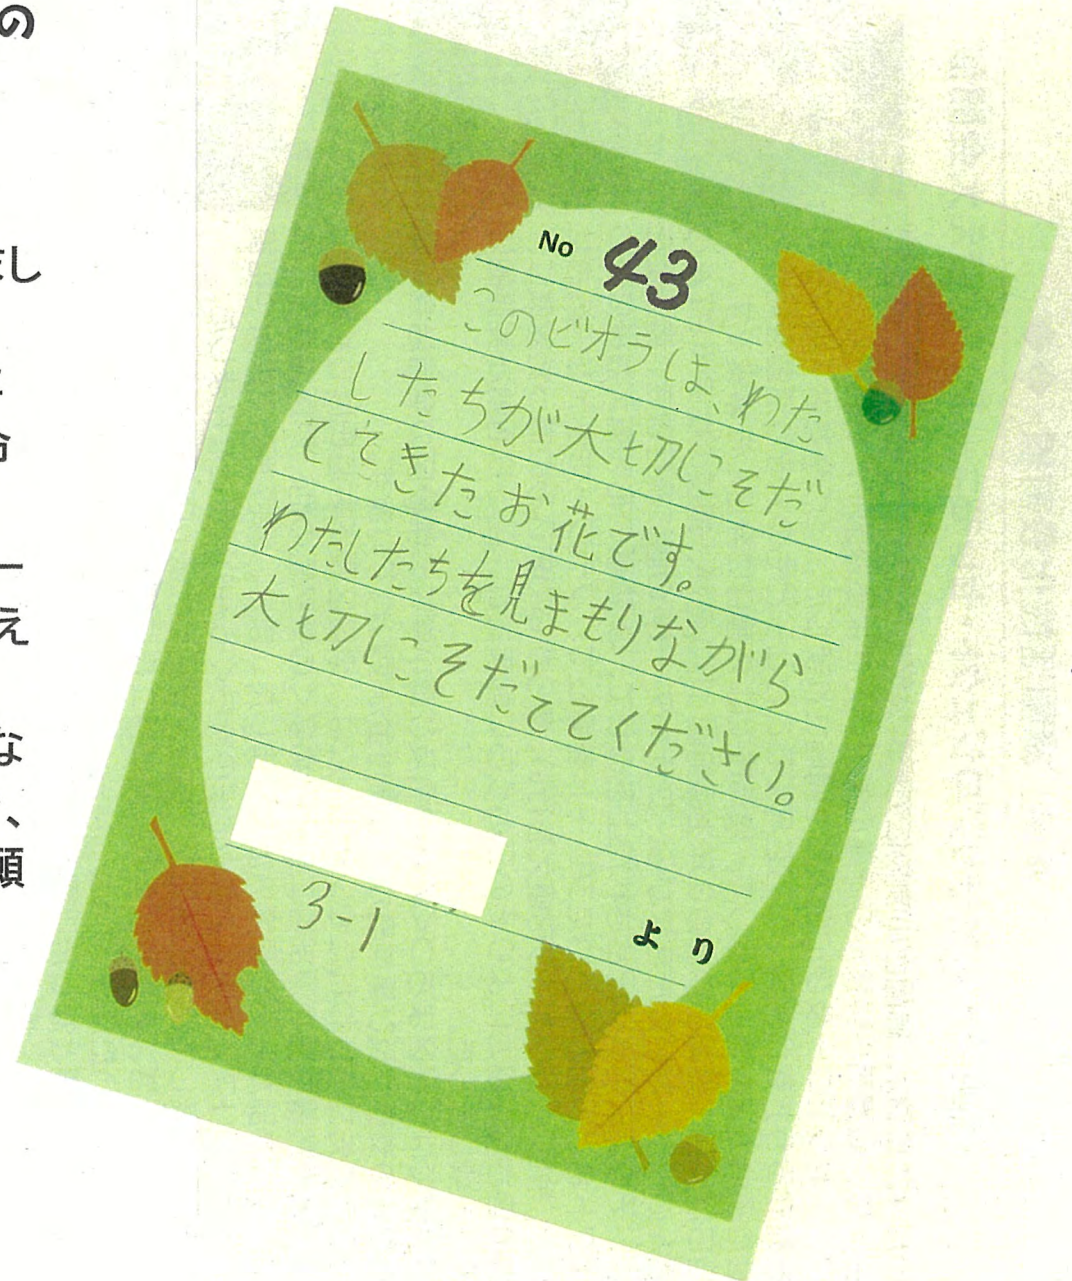 の
し
え
な
、
願
No 43
このビオラは、わた
したちが大切にそだ
ててきたお花です。
わたしたちを見まもりながら
大切にそだててください。
3-1
より